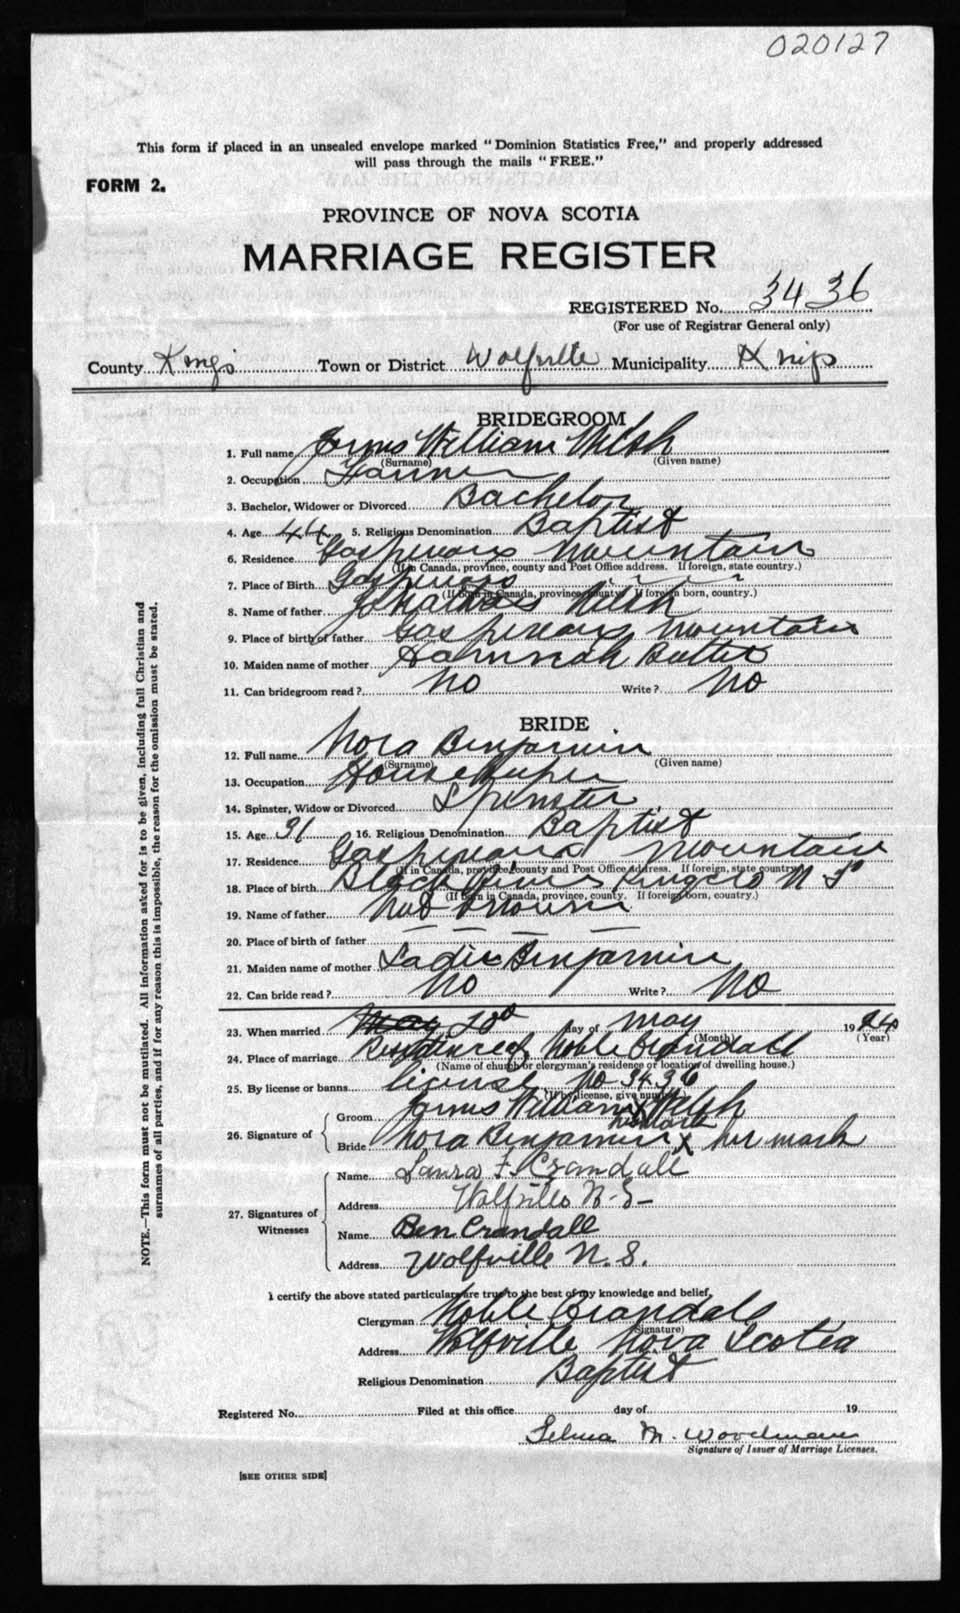 020127
This form if placed in an unsealed envelope marked "Dominion Statistics Free," and properly addressed
will pass through the mails "FREE."
FORM 2.
PROVINCE OF NOVA SCOTIA
MARRIAGE REGISTER
REGISTERED No. 3436
(For use of Registrar General only)
County Kings Town or District Wolfville Municipality Kings
BRIDEGROOM
1. Full name William Welsh
(Surname) (Given name)
2. Occupation Farmer
3. Bachelor, Widower or Divorced Bachelor
4. Age 44 5. Religious Denomination Baptist
6. Residence Gaspereaux Mountain
(If in Canada, province, county and Post Office address. If foreign, state country.)
7. Place of Birth Gaspereaux
(If born in Canada, province, county. If foreign born, country.)
8. Name of father Welsh
9. Place of birth of father Gaspereaux Mountain
10. Maiden name of mother Hannah
11. Can bridegroom read? No Write? No
BRIDE
12. Full name Nora Benjamin
(Surname) (Given name)
13. Occupation Housekeeper
14. Spinster, Widow or Divorced Spinster
15. Age 31 16. Religious Denomination Baptist
17. Residence Gaspereaux Mountain
(If in Canada, province, county and Post Office address. If foreign, state country.)
18. Place of birth Black River Kings Co N S
(If born in Canada, province, county. If foreign born, country.)
19. Name of father Not Known
20. Place of birth of father — — — —
21. Maiden name of mother Sadie Benjamin
22. Can bride read? No Write? No
23. When married May day of May 1924
(Month) (Year)
24. Place of marriage Residence of Noble Crandall
(Name of church or clergyman's residence or location of dwelling house.)
25. By license or banns license No 3436
(If by license, give number.)
26. Signature of
Groom William X Welsh
his mark
Bride Nora Benjamin X her mark
27. Signatures of Witnesses
Name Laura F. Crandall
Address Wolfville N.S.
Name Ben Crandall
Address Wolfville N.S.
I certify the above stated particulars are true to the best of my knowledge and belief,
Clergyman Noble Crandall
(Signature)
Address Wolfville Nova Scotia
Religious Denomination Baptist
Registered No. Filed at this office day of 19
Selma M. Woodman
Signature of Issuer of Marriage Licenses.
[SEE OTHER SIDE]
NOTE.—This form must not be mutilated. All information asked for is to be given, including full Christian and
surnames of all parties, and if for any reason this is impossible, the reason for the omission must be stated.